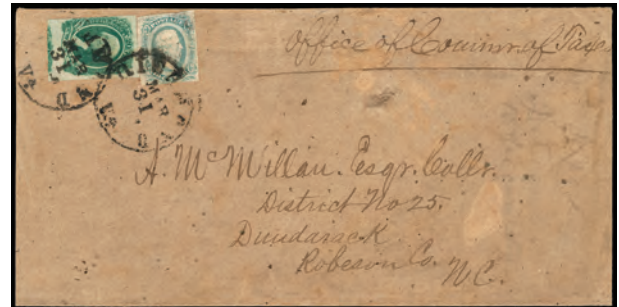 Office of Commr of Taxes
MAR
31
Va
MAR
31
Va
A. McMillan. Esqr. Collr.
District No 25.
Dundarack
Robeson Co.
N.C.